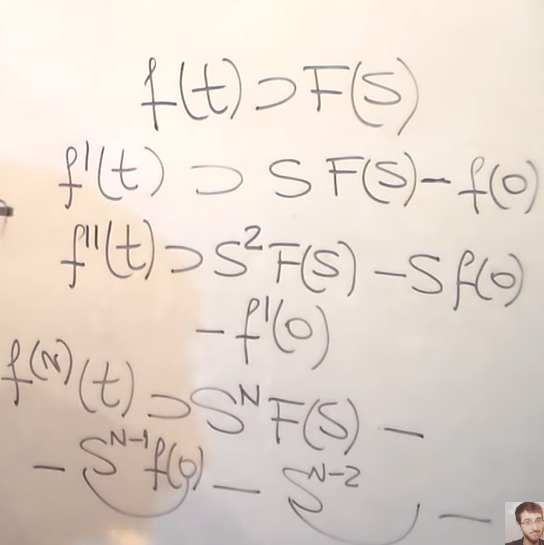 f(t) ⊃ F(S)
f'(t) ⊃ S F(S) - f(0)
f''(t) ⊃ S² F(S) - S f(0)
- f'(0)
f⁽ᴺ⁾(t) ⊃ Sᴺ F(S) -
- Sᴺ⁻¹ f(0) - Sᴺ⁻² -